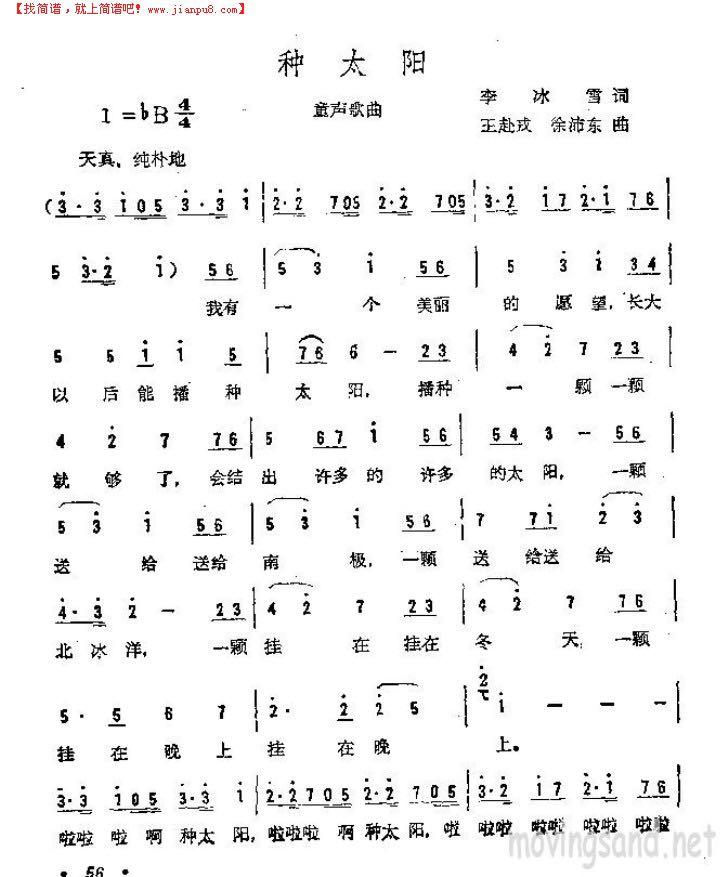 【找简谱，就上简谱吧！www.jianpu8.com】
种太阳
1=♭B 4/4 童声歌曲 李冰雪词
王赴戎 徐沛东曲
天真、纯朴地
(3·3 105 3·3 1 | 2·2 705 2·2 705 | 3·2 17 2·1 76 |
5 3·2 1) 56 | 5 3 1 56 | 5 3 1 34 |
我有一个美丽的愿望，长大
5 5 1 1 5 | 76 6 - 23 | 4 2 7 23 |
以后能播种太阳，播种一颗一颗
4 2 7 76 | 5 67 1 56 | 54 3 - 56 |
就够了，会结出许多的许多的太阳，一颗
5 3 1 56 | 5 3 1 56 | 7 71 2 3 |
送给送给南极，一颗送给送给
4·3 2 - 23 | 4 2 7 23 | 4 2 7 76 |
北冰洋，一颗挂在挂在冬天，一颗
5· 5 6 7 | 2· 2 2 5 | 2 1 - - - |
挂在晚上挂在晚上。
3·3 105 3·3 1 | 2·2705 2·2 705 | 3·2 17 2·1 76 |
啦啦啦啊种太阳，啦啦啦啊种太阳，啦啦啦啦啦啦啦啦
movingsand.net
· 56 ·